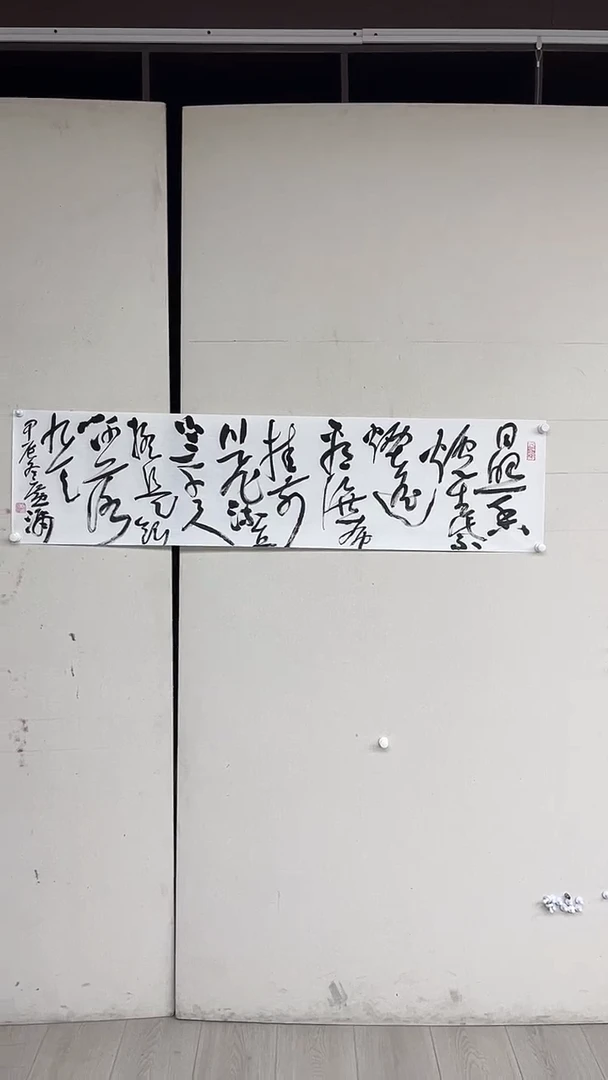 日照香
爐生紫
煙遙
看瀑布
挂前
川飛流直
下三千尺
疑是銀
河落
九天
甲辰冬